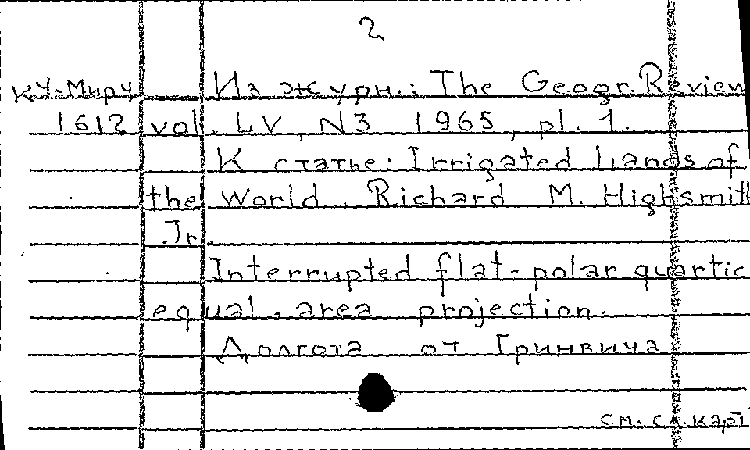 2
КУ-Миру Из журн.: The Geogr. Review
1612 vol. LV, N3 1965, pl. 1.
К статье: Irrigated Lands of
the World. Richard M. Highsmith
Jr.
Interrupted flat-polar quartic
equal-area projection.
Долгота от Гринвича
см. сл. карт